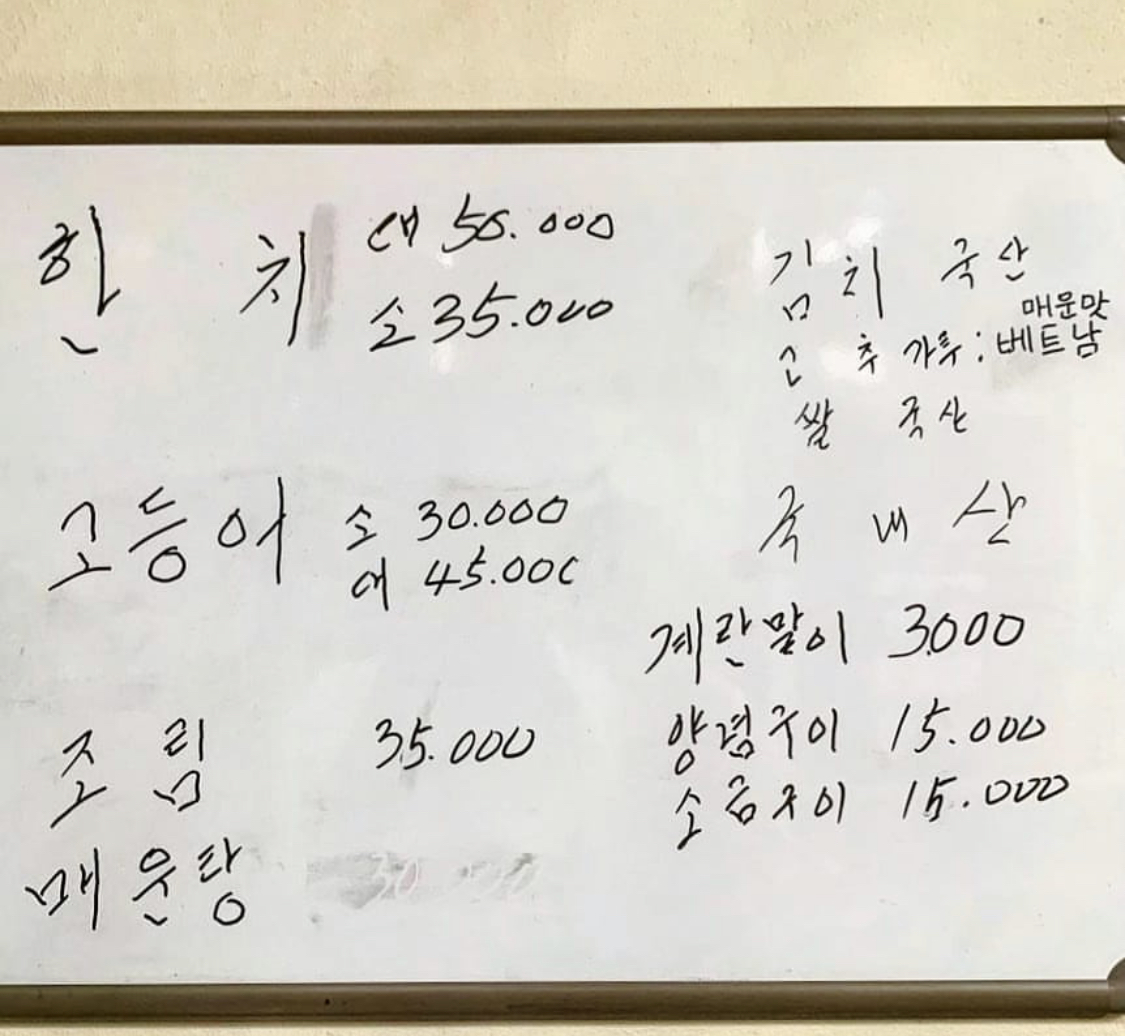 한 치 대 50.000
소 35.000
고등어 소 30.000
대 45.000
조 림 35.000
매운탕
김치 국산
매운맛
고 추 가루 : 베트남
쌀 국산
국 내 산
계란말이 3.000
양념구이 15.000
소금구이 15.000